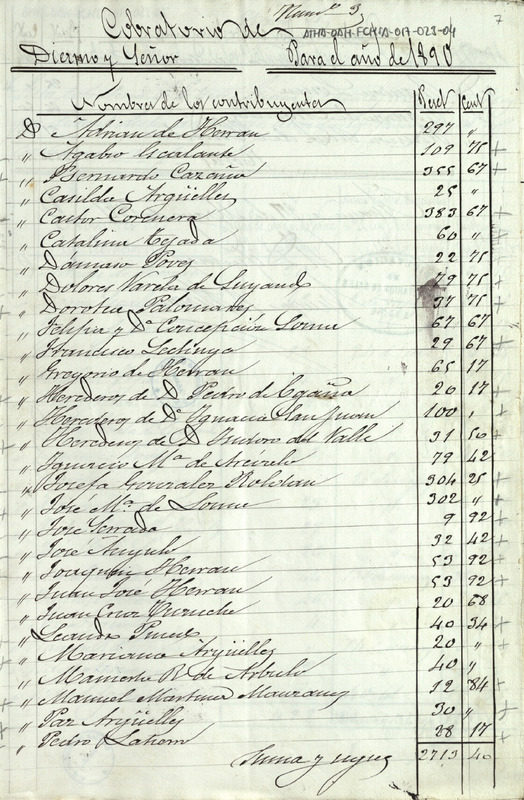 Num.º 3
7
Cobratorio de
ATHA-DAH-FCHIA-017-028-04
Diezmo y Señor Para el año de 1890
Nombres de los contribuyentes Peset Cent
D Adrian de Herran 297 "
" Agabio Escalante 109 75
" Bernardo Cazaña 355 67
" Casilda Argüelles 25 "
" Castor Corcuera 383 67
" Catalina Tejada 60 "
" Dámaso Poves 22 75
" Dolores Varela de Luyand 79 75
" Dorotea Palomares 37 75
" Felipa y Dª Concepcion Lorma 67 67
" Francisco 29 67
" Gregorio de Herran 65 17
" Herederos de D Pedro de Egaña 20 17
" Herederos de Dª Ignacia San Juan 100 "
" Herederos de D Isidoro del Valle 31 50
" Ignacio Mª de Arévalo 79 42
" Josefa Gonzalez Roldan 304 25
" José Mª de Lorma 302 "
" José Serrada 9 92
" José Angulo 32 42
" Joaquin Herran 53 92
" Juan José Herran 53 92
" Juan Cruz 20 68
" Leandro 40 34
" Mariano Argüelles 20 "
" Mamerta R. de Arbulo 40 "
" Manuel Martinez Manzanos 12 84
" Paz Argüelles 30 "
" Pedro Lahera 28 17
Suma y sigue 2713 40